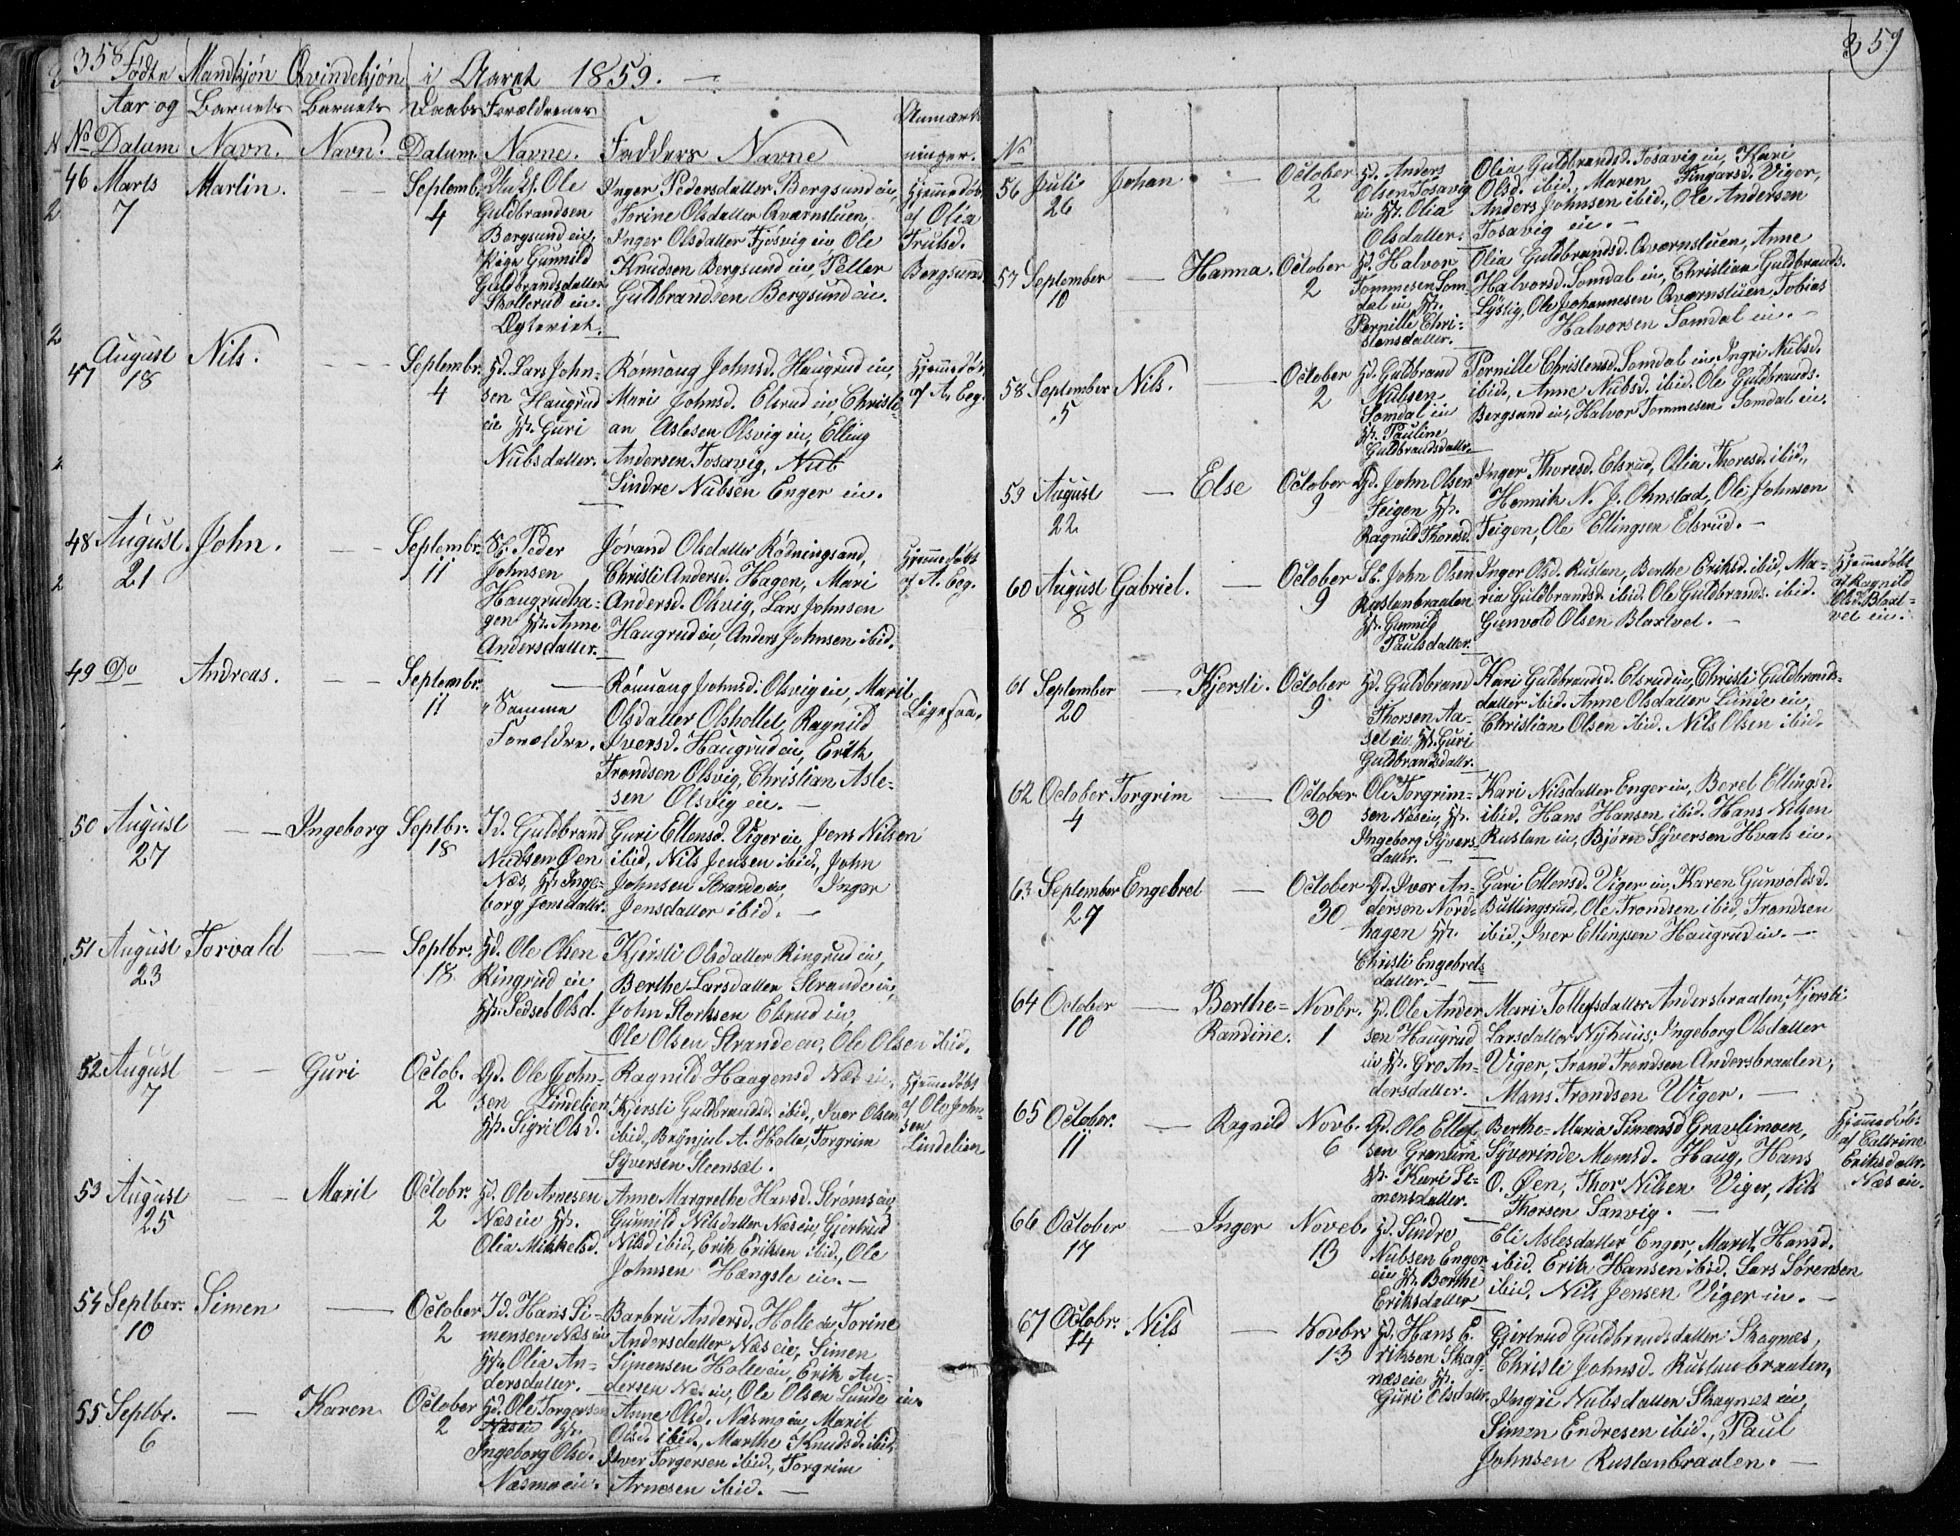 358 Fødte Mandkjøn Qvindekjøn i Aaret 1859.
Aar og Barnets Barnets Daabs Forældrenes Anmærk-
No Datum Navn. Navn. Datum. Navne. Fadders Navne ninger.
46 Marts 7 Martin. Septemb. 4
Ole
Guldbrandsen
Bergsund eie,
Pige Gunnild
Guldbrandsdatter
Skollerud eie.
Ugterick.
Inger Pedersdatter Bergsund eie,
Torine Olsdatter Qværnstuen,
Inger Olsdatter Fjøsvig eie Ole
Knudsen Bergsund eie, Petter
Guldbrandsen Bergsund eie.
Hjemmedøb.
af Olia
Trulsd.
Bergsund
47 August 18 Nils. Septembr. 4
Gd. Lars John-
sen Haugrud
eie H. Guri
Nubsdatter.
Rönnaug Johnsd. Haugrud eie,
Mari Johnsd. Elsrud eie, Christi-
an Aslesen Olsvig eie, Elling
Andersen Tosavig, Nub
Sindre Nubsen Enger eie.
Hjemmedøb.
af A. Eeg.
48 August 21 John. Septembr. 11
Sb. Peder
Johnsen
Haugrudha-
gen H. Anne
Andersdatter.
Jørand Olsdatter Rödningsand,
Christi Andersd. Hagen, Mari
Andersd. Olsvig, Lars Johnsen
Haugrud eie, Anders Johnsen ibid.
Hjemmedøbt
af A. Eeg.
49 Do Andreas. Septembr. 11
Samme
Forældre.
Rönnaug Johnsd. Olsvig eie, Marit
Olsdatter Olshollet, Ragnild
Iversd. Haugrud eie, Erik
Trondsen Olsvig, Christian Asle-
sen Olsvig eie.
Ligesaa.
50 August 27 Ingeborg Septbr. 18
Id. Guldbrand
Nielsen Øen
Næs, H. Inge-
borg Jensdatter.
Guri Ellensd. Viger eie Jens Nilsen
ibid, Nils Jensen ibid, John
Johnsen Strande eie, Inger
Jensdatter ibid.
51 August 23 Torvald Septbr. 18
Gd. Ole Olsen
Ringrud eie
H. Sedsel Olsd.
Kjersti Olsdatter Ringrud eie,
Berthe Larsdatter Strande eie,
John Storksen Elsrud eie
Ole Olsen Strande eie, Ole Olsen ibid.
52 August 7 Guri Octob. 2
Gd. Ole John-
sen Lindelien
H. Sigri Olsd.
Ragnild Haagensd Næs eie,
Kjersti Guldbrandsd. ibid, Iver Olsen
ibid, Brynjul A. Holte, Torgrim
Syversen Steensæt.
Hjemmedøbt
af Ole John-
sen
Lindelien
53 August 25 Marit Octobr. 2
Gd. Ole Arnesen
Næs eie H.
Olia Mikkelsd.
Anne Margrethe Hansd. Strøms eie,
Gunnild Nilsdatter Næs eie, Gjertrud
Nilsd ibid, Erik Eriksen ibid, Ole
Johnsen Hængsle eie.
54 Septber. 10 Simen October 2
Id. Hans Si-
mensen Næs eie
H. Olia An-
dersdatter.
Barbru Andersd. Holle eie Torine
Andersdatter Næs eie, Simen
Simensen Holle eie, Erik An-
dersen Næs eie, Ole Olsen Lunde eie.
55 Septbr. 6 Karen October 2
Gd. Ole Torgersen
Næs eie H.
Ingeborg Olsd.
Næsmo eie.
Anne Olsd. Næsmo eie, Marit
Olsd. ibid., Marthe Knudsd. ibid.
Iver Torgersen ibid, Torgrim
Arnesen ibid.
359
No
56 Juli 26 Johan October 2
Gd. Anders
Olsen Tosavig
eie H. Olia
Olsdatter.
Olia Guldbrandsd. Tosavig eie, Kari
Olsd. ibid, Maren Fingarsd. Viger,
Anders Johnsen ibid, Ole Andersen
Tosavig eie.
57 September 10 Hanna. October 2
Gd. Halvor
Tommesen Som-
dal eie H.
Pernille Chri-
stensdatter.
Olia Guldbrandsd. Qværnstuen, Anne
Halvorsd. Somdal eie, Christian Guldbrands.
Lystig, Ole Johannesen Qværnstuen, Tobias
Halvorsen Somdal eie.
58 September 5 Nils. October 2
Gd. Guldbrand
Nubsen
Somdal eie
H. Pauline
Guldbrandsdatter.
Pernille Christensd. Somdal eie Ingri Nubsd.
ibid, Anne Nubsd. ibid. Ole Guldbrands.
Bergsund eie, Halvor Tommesen Somdal eie.
59 August 22 Else October 9
Gd. John Olsen
Feigen H.
Ragnild Thoresd.
Inger Thoresd. Elsrud, Olia Thoresd. ibid,
Henrik N. J. Ohnstad, Ole Johnsen
Feigen, Ole Ellingsen Elsrud.
60 August 8 Gabriel. October 9
Sb. John Olsen
Ruslanbraaten
H. Gunnild
Paulsdatter.
Inger Olsd. Ruslan, Berthe Eriksd. ibid, Ma-
ria Guldbrandsd. ibid. Ole Guldbrands. ibid.
Gunvold Olsen Blaxtvet.
Hjemmedøbt
af Ragnild
Olsd. Blaxt-
vet eie.
61 September 20 Kjersti. October 9
Gd. Guldbrand
Thorsen Aa-
set eie H. Guri
Guldbrandsdatter.
Kari Guldbrandsd. Elsrud eie, Christi Guldbrands-
datter ibid. Anne Olsdatter Lunde eie,
Christian Olsen ibid. Nils Olsen ibid.
62 October 4 Torgrim October 30
Ole Torgrim-
sen Næs eie, H.
Ingeborg Syvers-
datter.
Kari Nilsdatter Enger eie, Beret Ellingsd.
ibid. Hans Hansen ibid. Hans Nilsen
Ruslan eie, Bjørn Syversen Hvals eie.
63 September 27 Engebret October 30
Gd. Iver An-
dersen Nord-
hagen H.
Christi Engebrets-
datter.
Guri Ellensd. Viger eie, Karen Gunvoldsd.
Bullingsrud, Ole Trondsen ibid, Trondsen
ibid, Iver Ellingsen Haugrud eie.
64 October 10 Berthe= Randine. Novbr. 1
Gd. Ole Ander
sen Haugrud
eie H. Gro An-
dersdatter.
Mari Tollefsdatter Andersbraaten, Kjersti
Larsdatter Nyhuus, Ingeborg Olsdatter
Viger, Trond Trondsen Andersbraaten,
Mons Trondsen Viger.
65 October. 11 Ragnild Novb. 6
Gd. Ole Ellef
sen Grønlim
H. Kari Si-
mensdatter.
Berthe= Maria Simensd Gravlimoen,
Syverinde Monsd. Haug, Hans
O. Øen, Thor Nilsen Viger, Nils
Thorsen Sanvig.
Hjemmedøb.
af Cathrine
Eriksdatter
Næs eie.
66 October 17 Inger Noveb. 13
Gd. Sindre
Nubsen Enger
eie H. Berthe
Eriksdatter
Eli Aslesdatter Enger, Marit Hansd.
ibid. Erik Hansen ibid. Lars Sørensen
ibid, Nils Jensen Viger eie.
67 Octobr. 14 Nils Novbr 13
Gd. Hans E.
riksen Skag-
næs eie H.
Guri Olsdatter.
Gjertrud Guldbrandsdatter Skagnæs,
Christi Johnsd. Ruslanbraaten,
Ingri Nubsdatter Skagnæs eie,
Simen Endresen ibid., Paul
Johnsen Ruslanbraaten.